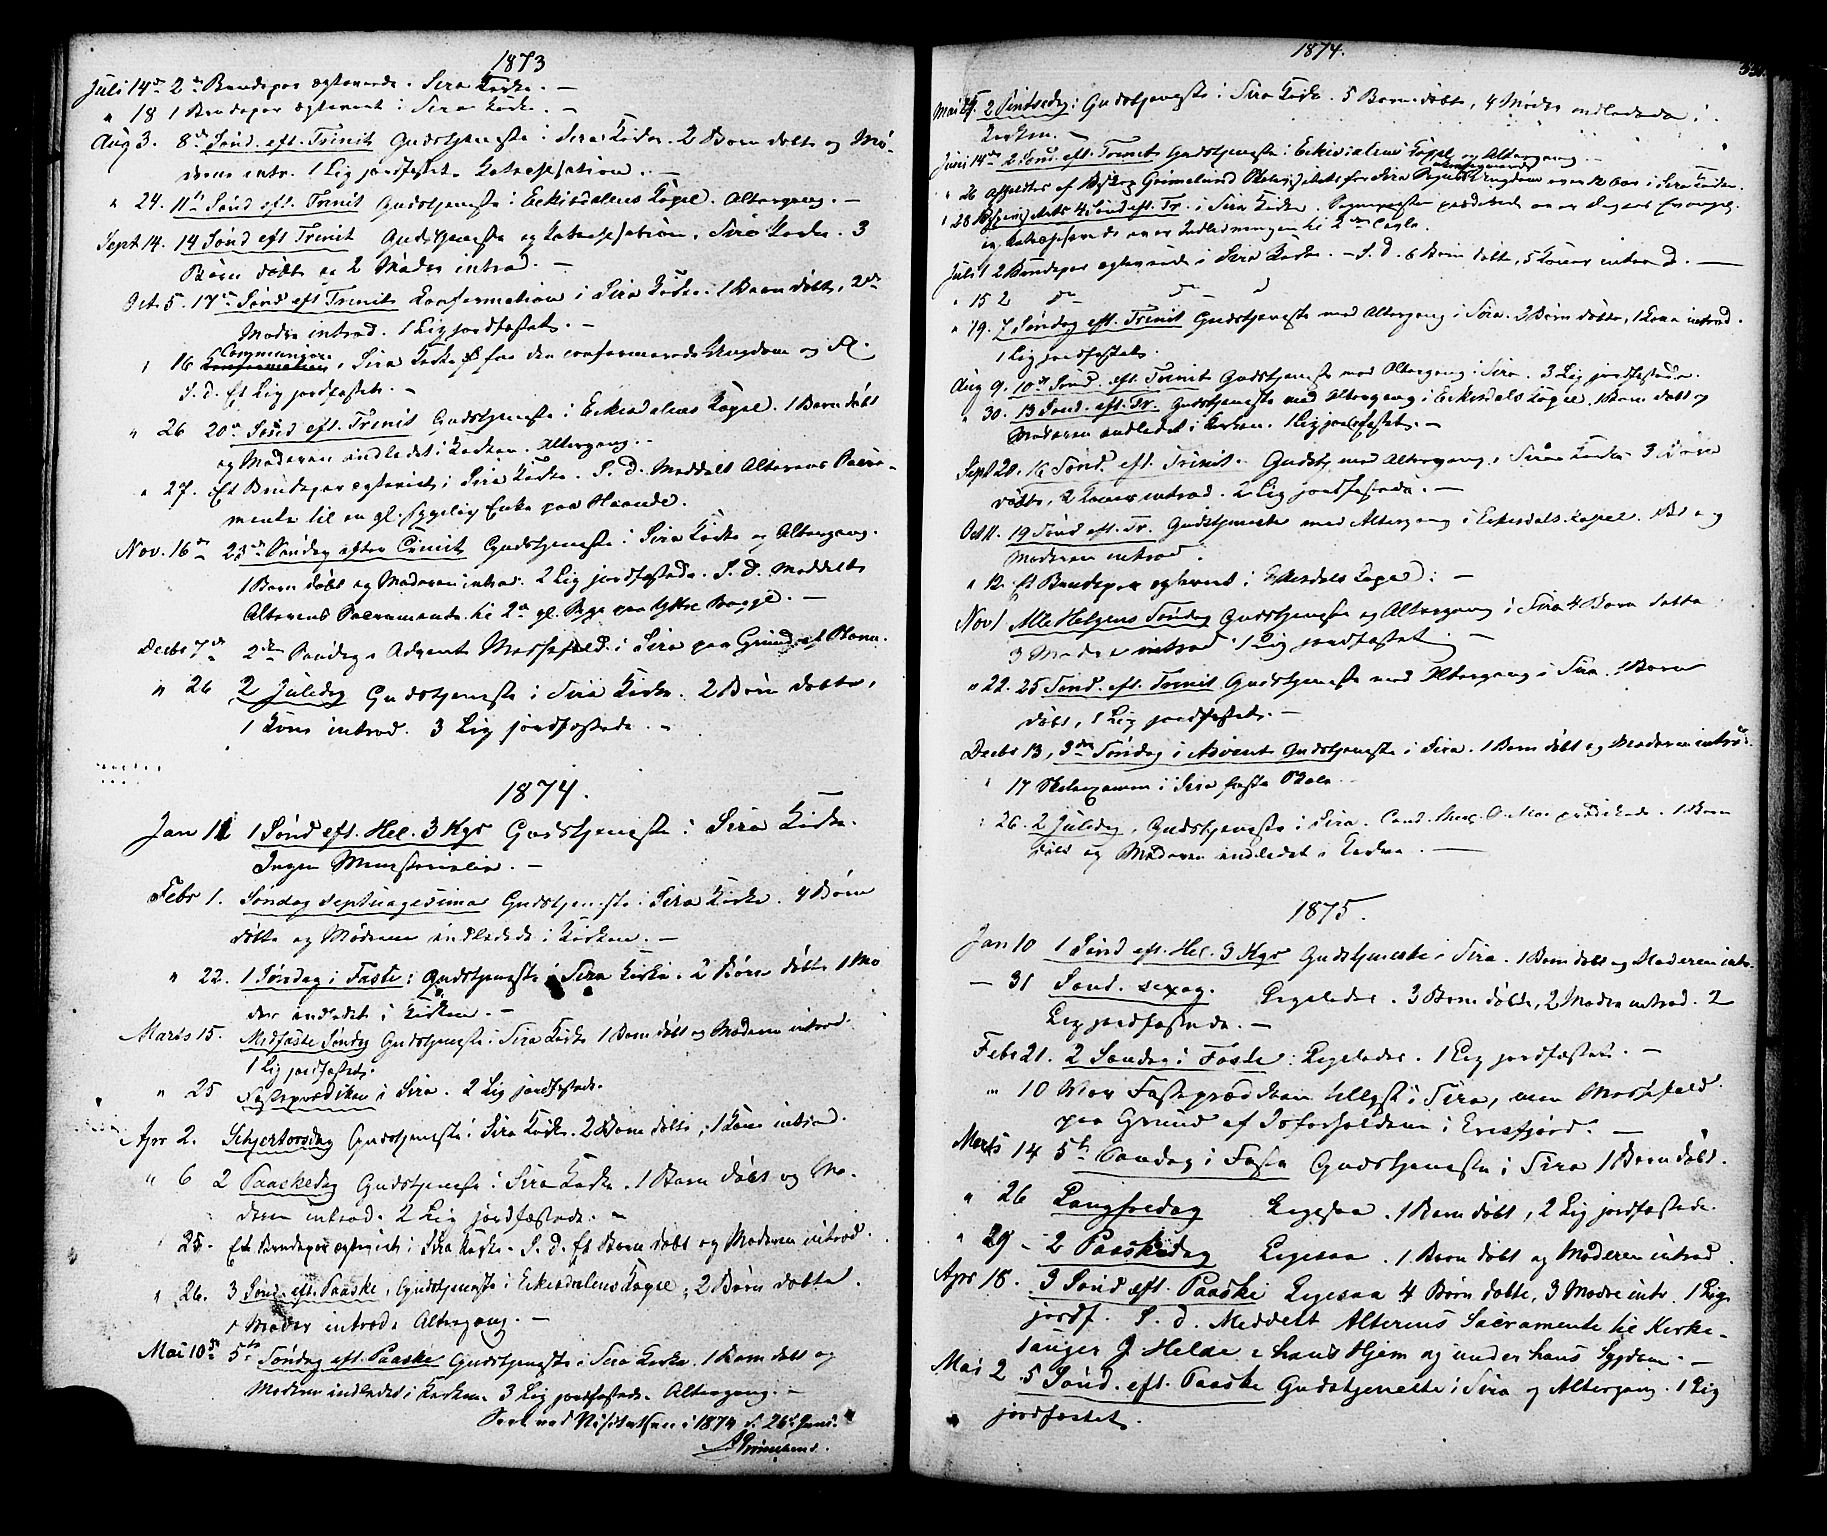 1873
Juli 14de 2de Brudepar ægteviede. Sira Kirke. —
" 18 1 Brudepar ægteviet i Sira Kirke. —
Aug 3. 8de Sønd. eft. Trinit Gudstjeneste i Sira Kirke. 2 Børn døbte og Mø-
drene intr. 1 Lig jordfæstet. Katechisation. —
" 24. 11te Sønd eft. Trinit Gudstjeneste i Eckisdalens Capel. Altergang. —
Sept 14. 14 Sønd eft Trinit Gudstjeneste og Katechisation, Sira Kirke. 3
Børn døbte og 2 Mødre introd. —
Oct. 5. 17de Sønd eft Trinit Confirmation i Sira Kirke. 1 Barn døbt, 2de
Mødre introd. 1 Lig jordfæstet. —
" 16 Communion i Sira Kirke for den confirmerede Ungdom og Fl.
S. d. Et Lig jordfæstet. —
" 26 20de Sønd eft. Trinit Gudstjeneste i Eckisdalens Capel. 1 Barn døbt
og Moderen indledet i Kirken. Altergang. —
" 27. Et Brudepar ægteviet i Sira Kirke. S. D. Meddelt Alterens Sacra-
mente til en gl. sygelig Enke paa Maande.
Nov. 16de 23de Søndag efter Trinit Gudstjeneste i Sira Kirke og Altergang.
1 Barn døbt og Moderen introd. 2 Lig jordfæstede. S. D. Meddelt
Alterens Sacramente til 2de gl. Syge paa Ytre Bugge. —
Decbr 7de 2den Søndag i Advent Messefald i Sira paa Grund af Storm.
" 26 2 Juledag Gudstjeneste i Sira Kirke. 2 Børn døbte,
1 Kone introd. 3 Lig jordfæstede. —
1874.
Jan 11 1 Sønd eft. Hel. 3 Kgr Gudstjeneste i Sira Kirke.
Ingen Ministerialia. —
Febr 1. Søndag septuagesima Gudstjeneste i Sira Kirke. 4 Børn
døbte og Mødrene indledede i Kirken. —
" 22. 1 Søndag i Faste: Gudstjeneste i Sira Kirke. 2 Børn døbte 1 Mo
der indledet i Kirken. —
Marts 15. Midfaste Søndag Gudstjeneste i Sira Kirke 1 Barn døbt og Moderen introd.
1 Lig jordfæstet.
" 25 Fasteprædiken i Sira. 2 Lig jordfæstede.
Apr 2. Skjertorsdag Gudstjeneste i Sira Kirke. 2 Børn døbte, 1 Kone introd
" 6 2 Paaskedag Gudstjeneste i Sira Kirke. 1 Barn døbt og Mo-
deren introd. 2 Lig jordfæstede. —
" 25. Et Brudepar ægteviet i Sira Kirke. S. D. Et Barn døbt og Moderen introd.
" 26. 3 Sønd. eft. Paaske, Gudstjeneste i Eckisdalens Capel, 2 Børn døbte.
1 Moder introd. Altergang. —
Mai 10de 5te Søndag eft. Paaske Gudstjeneste i Sira Kirke. 1 Barn døbt og
Moderen indledet i Kirken. 3 Lig jordfæstede. Altergang. —
Seet ved Visitatsen i 1874 d. 26de Juni.
A Grimelund.
1874.
Mai 25. 2 Pintsedag: Gudstjeneste i Sira Kirke. 5 Børn døbte, 4 Mødre indledede i
Kirken. —
Juni 14de 2 Sønd. eft. Trinit Gudstjeneste i Eckisdalens Capel og Altergang. —
" 26 afholdtes af Biskop Grimelund Visitats for Sira Sogns Ungdom over 12 Aar i Sira Kirke.
" 28 4 Sønd eft. Tr. i Sira Kirke. Sognepresten prædikede over Dagens Evangel.
og Katechiserede over Indledningen til 2den Parts.
Juli 1 2 Brudepar ægteviede i Sira Kirke. — S. D. 6 Børn døbte, 5 Koner introd. —
" 15 2 do do d
" 19. 7 Søndag eft. Trinit Gudstjeneste med Altergang i Sira. 2 Børn døbte, 1 Kone introd.
1 Lig jordfæstet.
Aug 9. 10de Sønd. eft. Trinit Gudstjeneste med Altergang i Sira. 3 Lig jordfæstede.
" 30. 13 Sønd. eft. Tr. Gudstjeneste med Altergang i Eckisdals Capel. 1 Barn døbt og
Moderen indledet i Kirken. 1 Lig jordfæstet. —
Sept 20. 16 Sønd. eft. Trinit. Gudstj. med Altergang, Sira Kirke 3 Børn
døbte, 2 Koner introd. 2 Lig jordfæstede. —
Oct 11. 19 Sønd eft. Tr. Gudstjeneste med Altergang i Eckisdals Capel. 1 B. d og
Moderen introd.
" 12. Et Brudepar ægteviet i Eckisdals Capel. —
Nov 1 Alle Helgens Søndag Gudstjeneste og Altergang i Sira 4 Børn døbte
3 Mødre introd 1 Lig jordfæstet. —
" 22. 25 Sønd. eft. Trinit Gudstjeneste med Altergang i Sira. 1 Barn
døbt, 1 Lig jordfæstet. —
Decbr 13, 3die Søndag i Advent Gudstjeneste i Sira. 1 Barn døbt og Moderen intro-
" 17 Skoleexamen i Sira faste Skole.
" 26. 2 Juledag, Gudstjeneste i Sira. Cand. theol. O. Moe prædikede. 1 Barn
døbt og Moderen indledet i Kirken. —
1875.
Jan 10 1 Sønd eft. Hel. 3 Kgr Gudstjeneste i Sira. 1 Barn døbt og Moderen intr.
— 31 Sønd. sexag. Ligeledes. 3 Børn døbte, 2 Mødre introd. 2
Lig jordfæstede. —
Febr 21. 2 Søndag i Faste: Ligeledes. 1 Lig jordfæstet. —
" 10 Var Fasteprædiken tillyst i Sira, men Messefald
paa Grund af Isforholdene i Erisfjord. —
Marts 14 5te Søndag i Faste Gudstjeneste i Sira 1 Barn døbt.
" 26 Langfredag Ligesaa. 1 Barn døbt, 2 Lig jordfæstede.
" 29 — 2 Paaskedag Ligesaa. 1 Barn døbt og Moderen introd.
Apr 18. 3 Sønd eft. Paaske Ligesaa 4 Børn døbte, 3 Mødre intr. 1 Lig
jordf. S. d. Meddelt Alterens Sacramente til Kirke-
sanger J Helde i hans Hjem og under hans Sygdom. —
Mai 2 5 Sønd. eft. Paaske Gudstjeneste i Sira og Altergang. 1 Lig
jordfæstet.